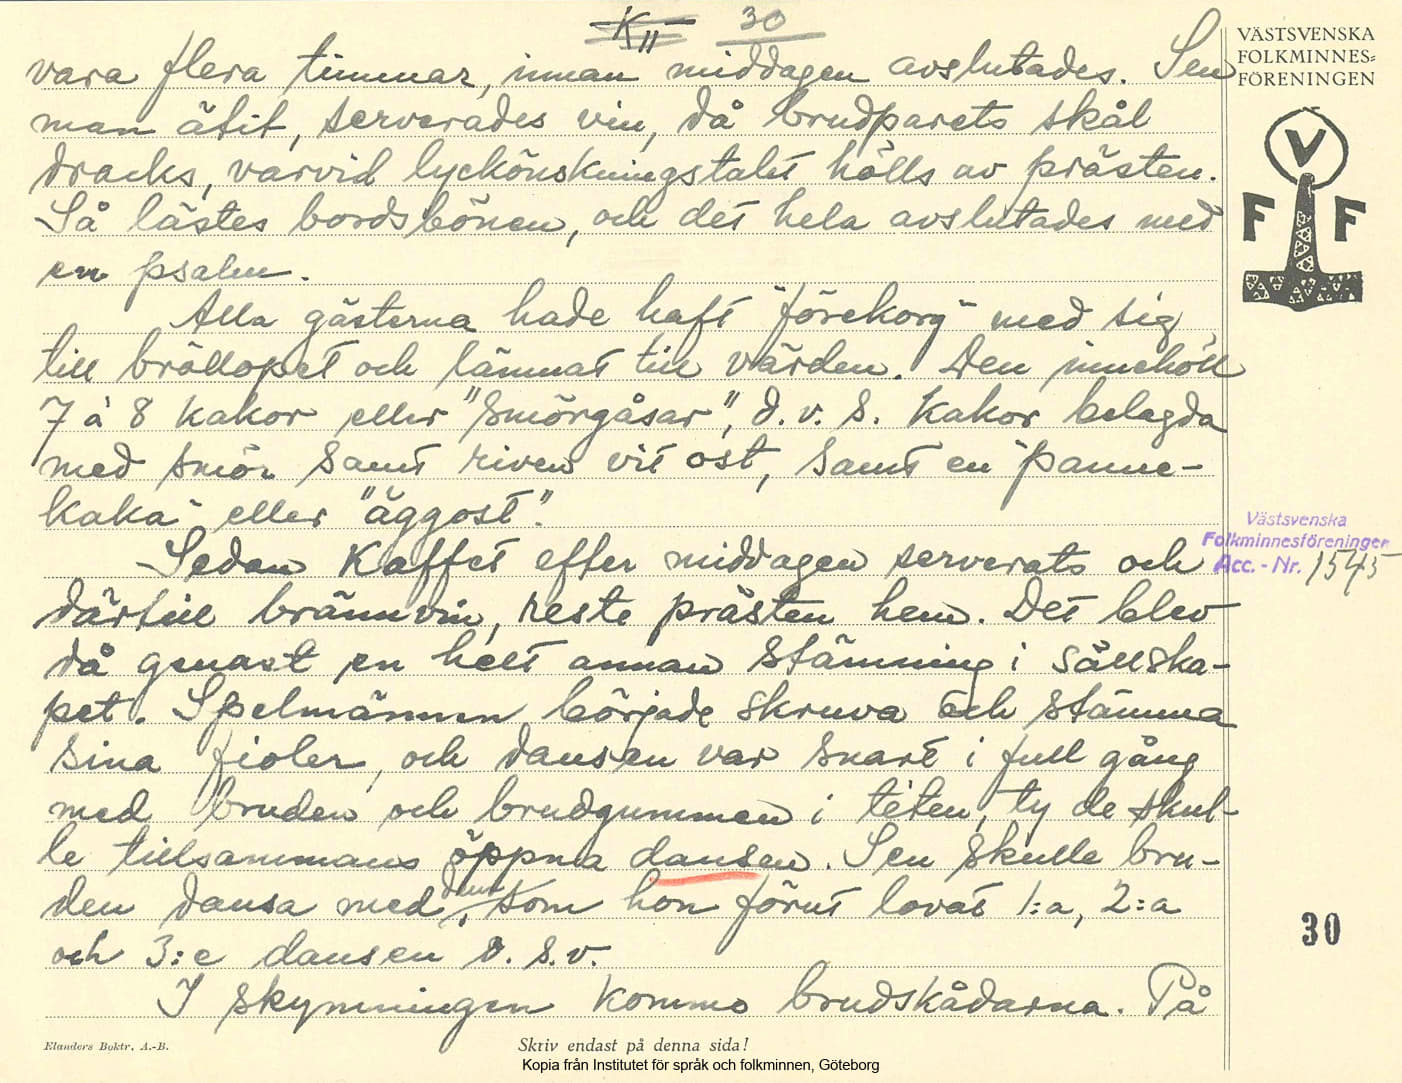 K II 30
vara flera timmar, innan middagen avslutades. Sen
man ätit, serverades vin, då brudparets skål
dracks, varvid lyckönskningstalet hölls av prästen.
Så lästes bordsbönen, och det hela avslutades med
en psalm.
Alla gästerna hade haft "förekorg" med sig
till bröllopet och lämnat till värden. Den innehöll
7 à 8 kakor eller "smörgåsar", d.v.s. kakor belagda
med smör samt riven vit ost, samt en "panne-
kaka" eller "äggost".
Sedan kaffet efter middagen serverats och
därtill brännvin, reste prästen hem. Det blev
då genast en helt annan stämning i sällska-
pet. Spelmännen började skruva och stämma
sina fioler, och dansen var snart i full gång
med bruden och brudgummen i téten, ty de skul-
le tillsammans öppna dansen. Sen skulle bru-
den dansa med dem, som hon förut lovat 1:a, 2:a
och 3:e dansen o.s.v.
I skymningen kommo brudskådarna. På
VÄSTSVENSKA
FOLKMINNES=
FÖRENINGEN
V
F F
Västsvenska
Folkminnesföreningen
Acc.-Nr. 1545
30
Elanders Boktr. A.-B.
Skriv endast på denna sida!
Kopia från Institutet för språk och folkminnen, Göteborg